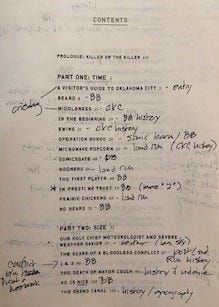 CONTENTS
PROLOGUE: KILLER OF THE KILLER
PART ONE: TIME
A VISITOR'S GUIDE TO OKLAHOMA CITY - entry
BEARD - BB
MIDDLENESS - OKC
IN THE BEGINNING - BB history
EWING - OKC history
OPERATION BONGO - sonic boom / BB
MICROWAVE POPCORN - land run (OKC history)
SONICSGATE - BB
NOONERS - land run
THE FIRST PLAYER - BB
* IN PRESTI WE TRUST - BB
PRAIRIE CHICKENS - land run
NO BEARD - BB
PART TWO: SIZE
OUR HOLY CHIEF METEOROLOGIST AND SEVERE
WEATHER SAVIOR - weather
THE SCARS OF A BLOODLESS CONFLICT - land
history
1 & 2 = BB
THE DEATH OF MAYOR COUCH - history & violence
KD IS NICE - BB
THE GRAND CANAL - history / geography